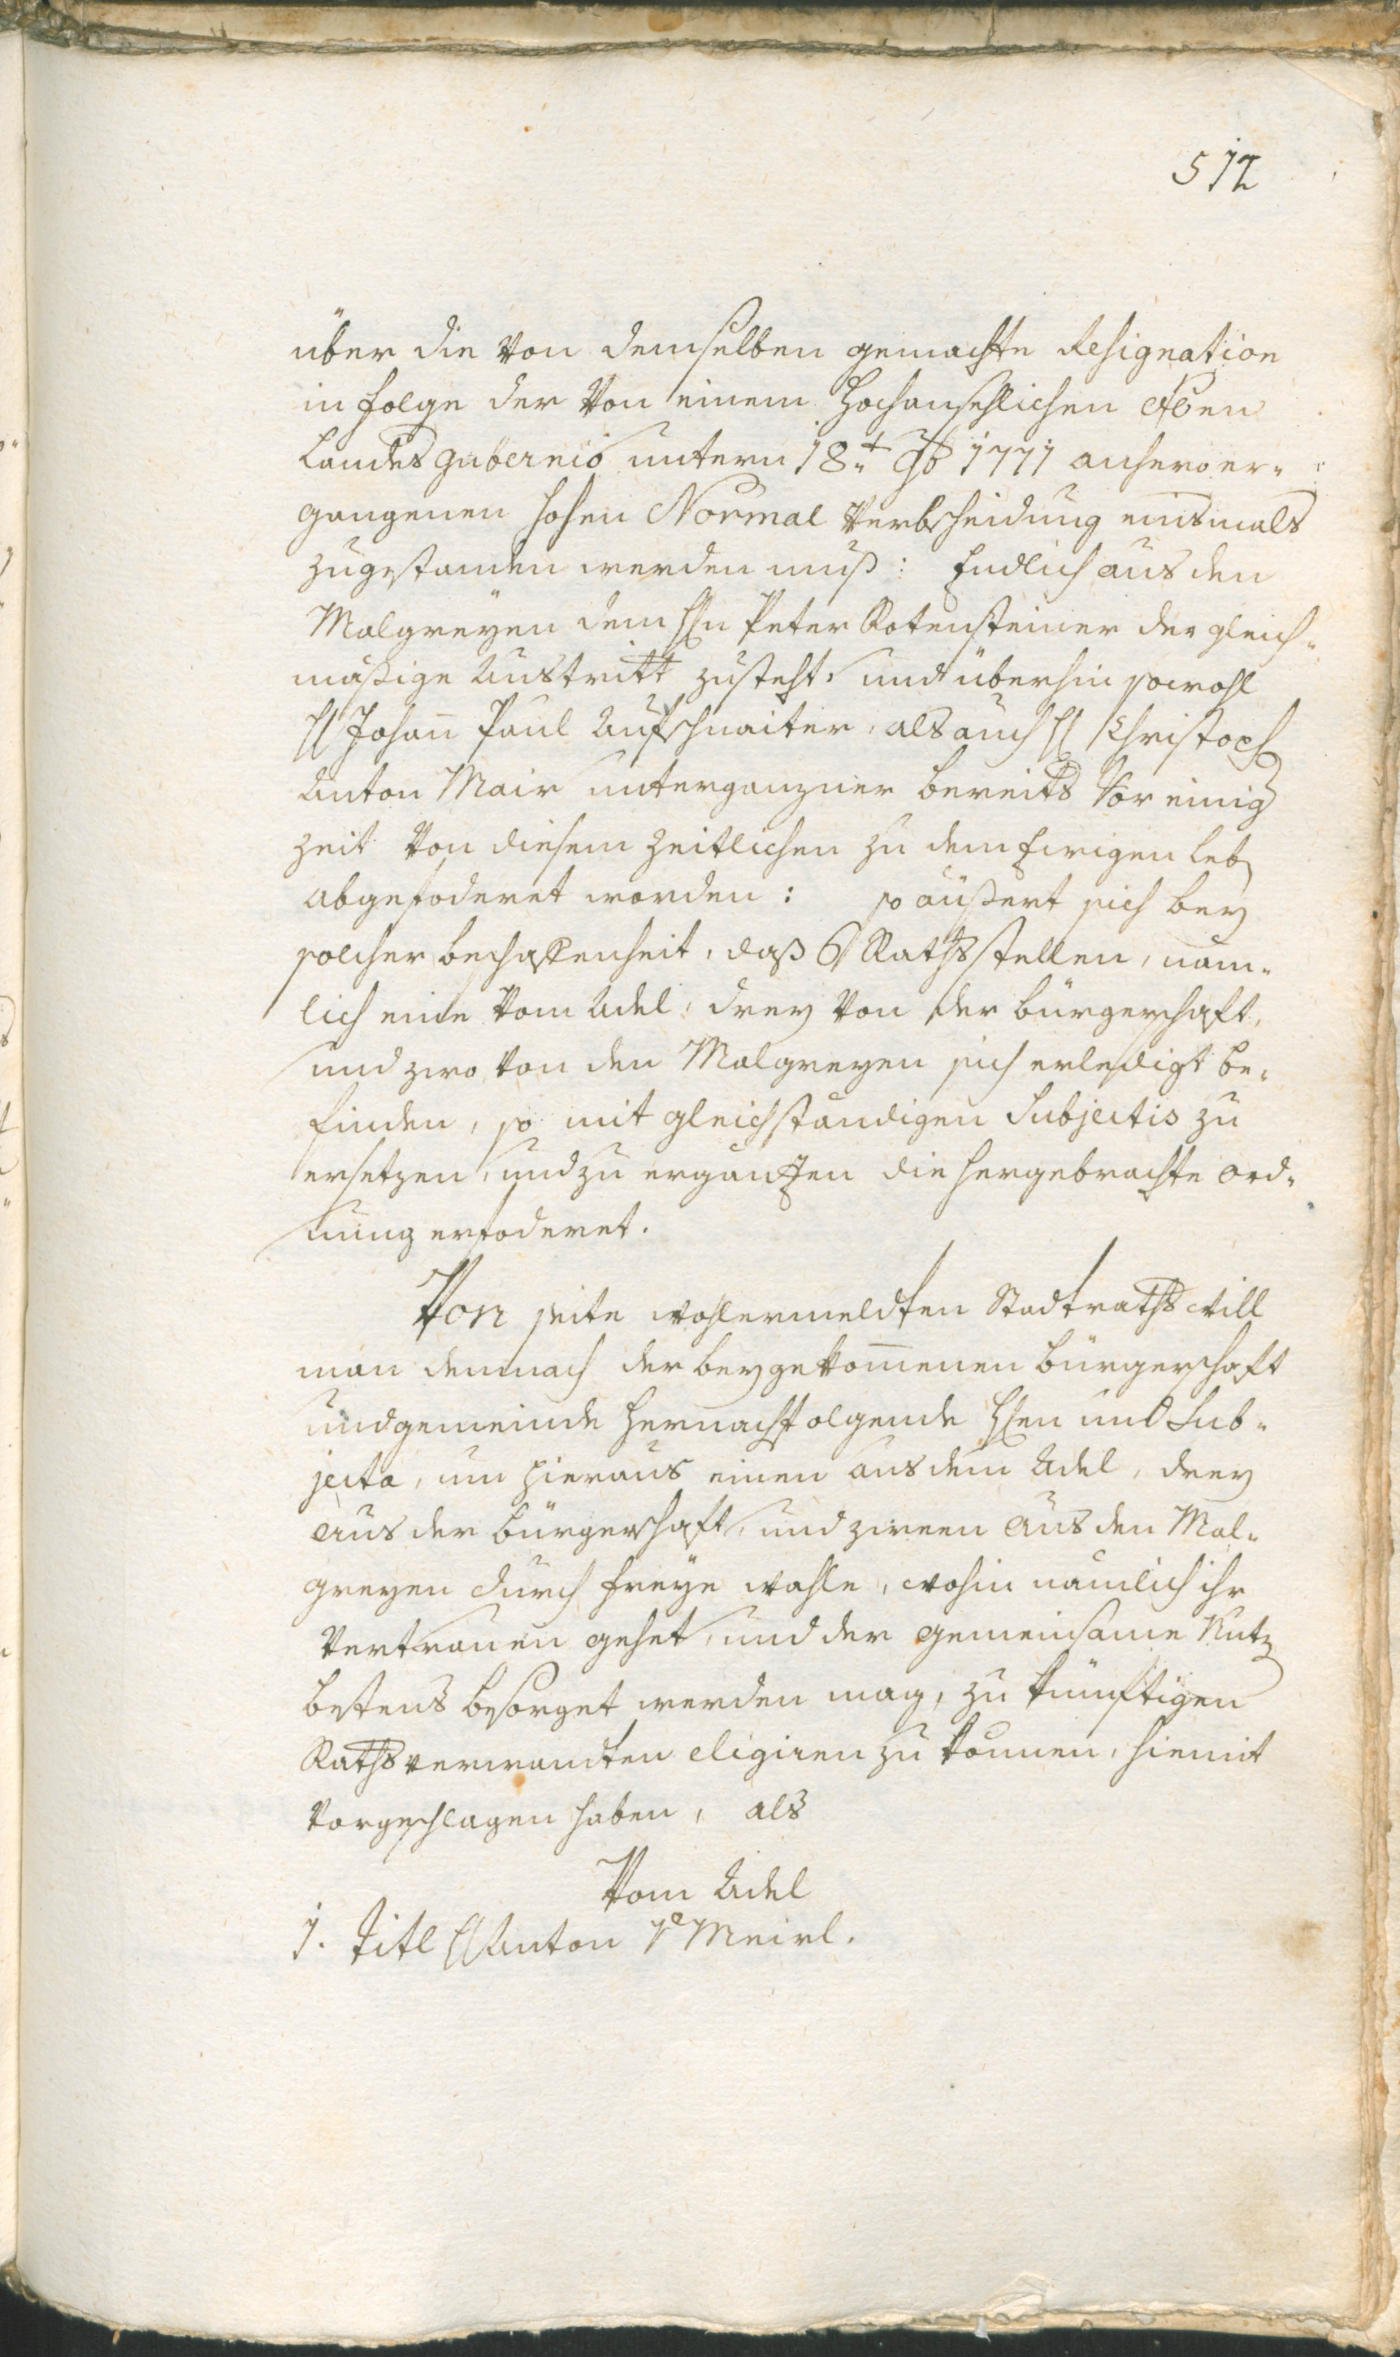 512
über die von demselben gemachte Resignation
in folge der von einem Hochansehlichen Oben
Landes Gubernio untern 18t 1771 anhero er-
gangenen hohen Normal Verbscheidung einsmals
zugestanden werden muß: Endlich aus den
Malgreyen dem Hn Peter Rotensteiner der gleich-
mäßige Austritt zusteht, und überhin sowohl
H Johann Paul Aufschnaiter, als auch H Christoph
Anton Mair unterganzner bereits vor einig
zeit von diesem zeitlichen zu dem Ewigen Leb
abgefoderet worden: so äußert sich bey
solcher beschaffenheit, daß 6 Rathsstellen, näm-
lich eine vom Adel, drey von der bürgerschaft,
und zwo von den Malgreyen sich erledigt be-
finden, so mit gleichständigen Subjectis zu
ersetzen, und zu ergänzen die hergebrachte ord-
nung erfoderet.
Von seite wohlermeldten Stadtraths will
man demnach der beygekommenen bürgerschaft
und gemeinde hernachfolgende Hen und Sub-
jecta, um hieraus einen aus dem Adel, drey
aus der bürgerschaft, und zween aus den Mal-
greyen durch freye wahle, wohin nämlich ihr
Vertrauen gehet, und der gemeinsame Nutz
bestens besorget werden mag, zu künftigen
Rathsverwandten eligiren zu können, hiemit
vorgeschlagen haben, als
Vom Adel
1. Titl H Anton v Meirl.